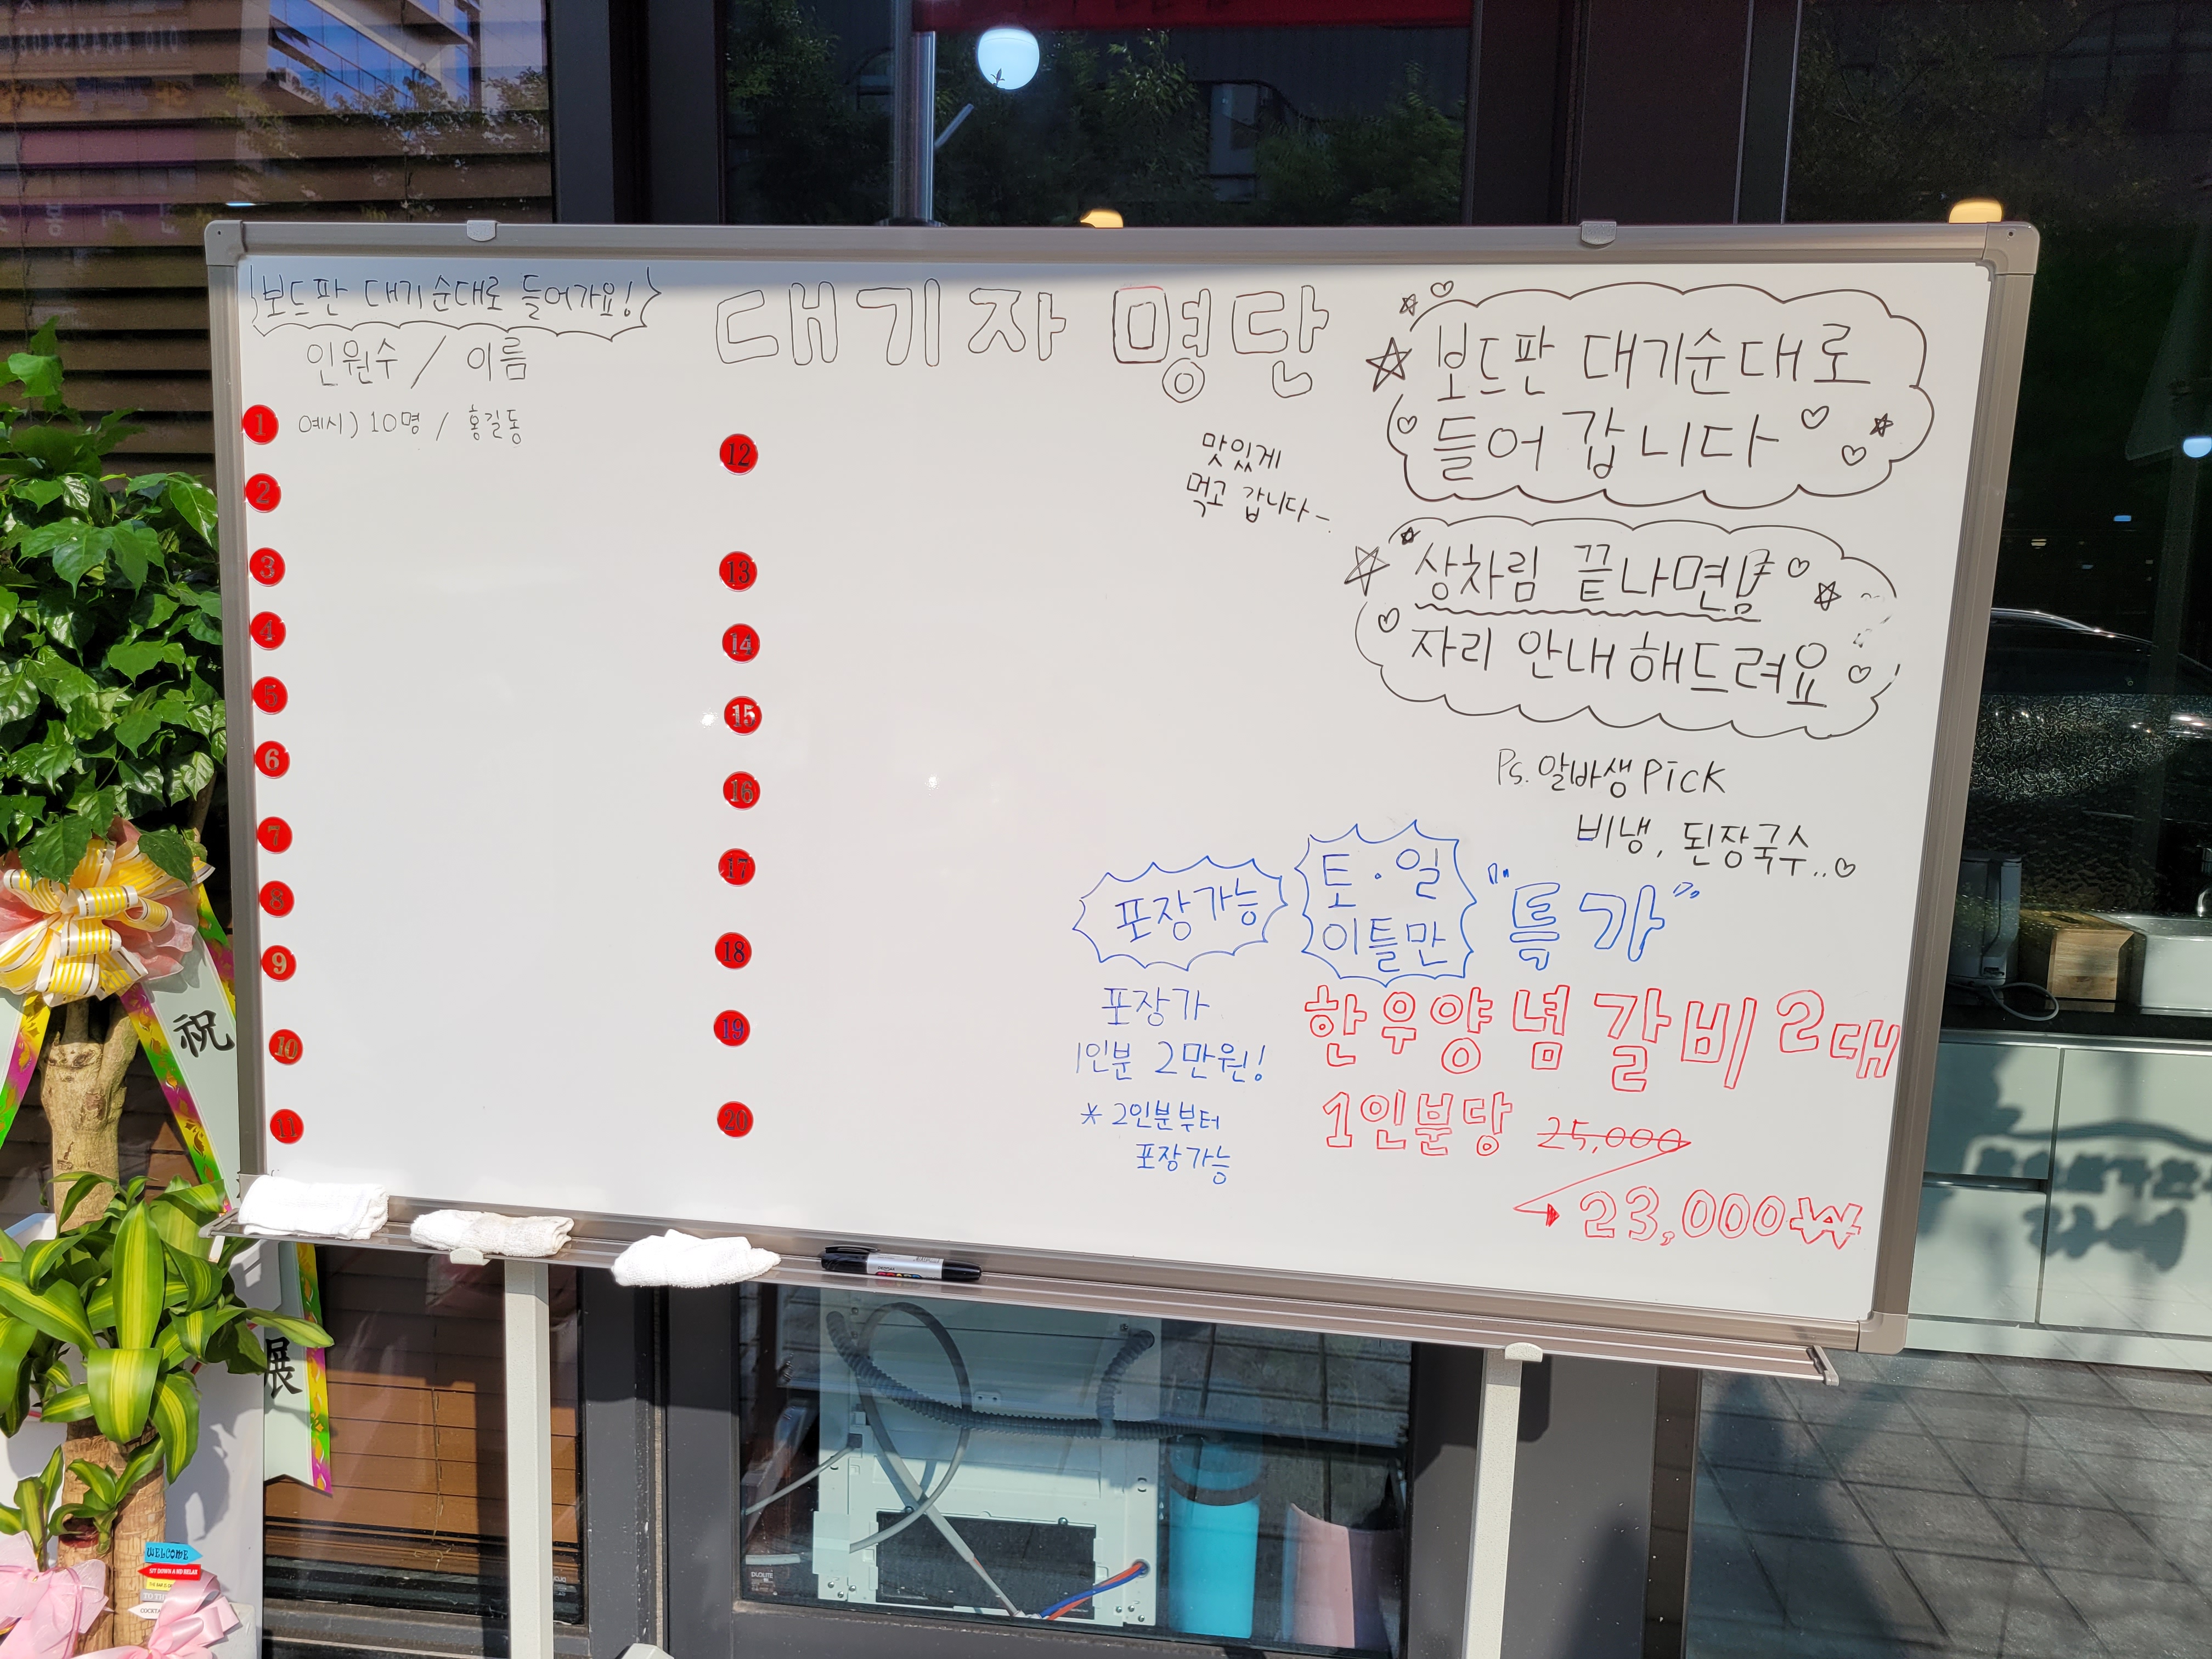 보드판 대기순대로 들어가요!
인원수 / 이름
대기자 명단
1 예시) 10명 / 홍길동
2
3
4
5
6
7
8
9
10
11
12
13
14
15
16
17
18
19
20
맛있게
먹고 갑니다~.
보드판 대기순대로
들어 갑니다
상차림 끝나면
자리 안내해드려요
Ps. 알바생 Pick
비냉, 된장국수..♡
포장가능
토·일
이틀만
"특가"
포장가
1인분 2만원!
* 2인분부터
포장가능
한우양념갈비 2대
1인분당 25,000
→ 23,000₩
祝
展
WELCOME
SIT DOWN AND RELAX